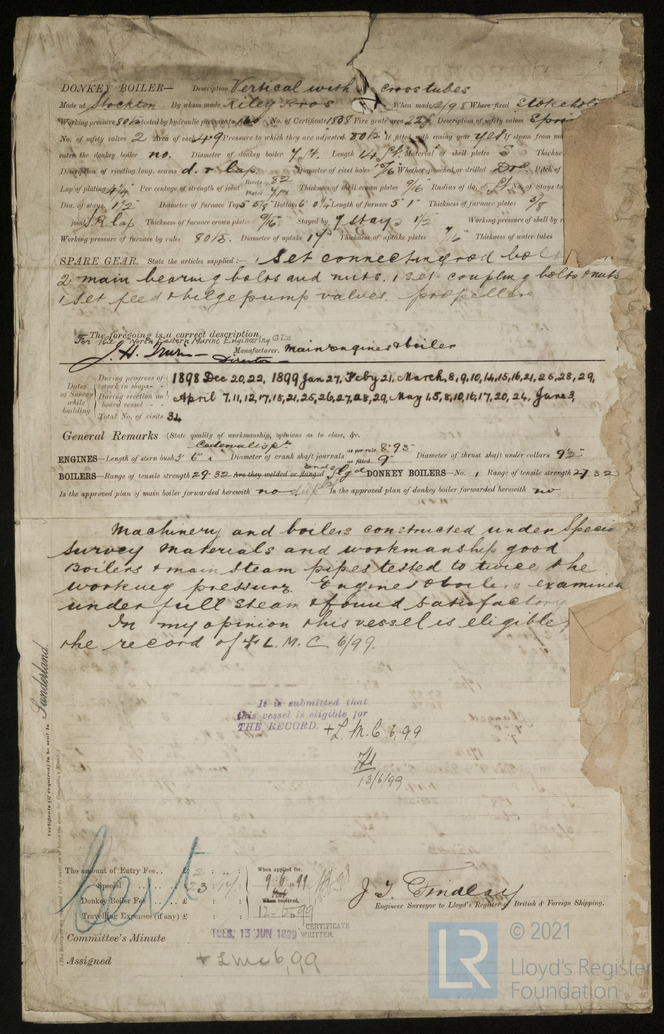 DONKEY BOILER— Description Vertical with cross tubes
Made at Stockton By whom made Riley Bros When made 2/98 Where fixed Stokehold
Working pressure 80 lb tested by hydraulic pressure to 160 No. of Certificate 1808 Fire grate area Description of safety valves Spring
No. of safety valves 2 Area of each 4.9 Pressure to which they are adjusted 80 lb If fitted with easing gear yes If steam from main
enter the donkey boiler no. Diameter of donkey boiler Length Material of shell plates S Thickness
Description of riveting long. seams d. r. lap Diameter of rivet holes Whether punched or drilled Pitch of
Lap of plating Per centage of strength of joint Rivets 82 Plates Thickness of shell crown plates 9/16 Radius of do. No. of Stays to
Dia. of stays 1 1/2 Diameter of furnace Top Bottom Length of furnace 5' 1" Thickness of furnace plates 5/8
joint S.R. Lap Thickness of furnace crown plates 9/16 Stayed by 7 stays 1 1/2 Working pressure of shell by
Working pressure of furnace by rules 80 lb. Diameter of uptake Thickness of uptake plates 7/16 Thickness of water tubes
SPARE GEAR. State the articles supplied:— 1 Set connecting rod bolts
2 main bearing bolts and nuts. 1 set coupling bolts & nuts
1 set feed & bilge pump valves. propellers
The foregoing is a correct description,
For The North Eastern Marine Engineering Co Ld
Manufacturer. main engines & boiler
Director
Dates of Survey while building
During progress of work in shops - - 1898 Dec 20, 22, 1899 Jan 27, Feby 21, March, 8, 9, 10, 14, 15, 16, 21, 25, 28, 29,
During erection on board vessel - - - April 7, 11, 12, 17, 18, 21, 25, 26, 27, 28, 29, May 1, 5, 8, 10, 16, 17, 20, 24, June 3,
Total No. of visits 34
General Remarks (State quality of workmanship, opinions as to class, &c.
ENGINES—Length of stern bush 3' 6" Diameter of crank shaft journals as per rule 8.93 as fitted 9" Diameter of thrust shaft under collars
BOILERS—Range of tensile strength 29-32 Are they welded or flanged DONKEY BOILERS—No. 1 Range of tensile strength 27.32
Is the approved plan of main boiler forwarded herewith no Is the approved plan of donkey boiler forwarded herewith no
Machinery and boilers constructed under Special
survey Materials and workmanship good
Boilers & main steam pipes tested to twice the
working pressure Engines & boilers examined
under full steam & found satisfactory
In my opinion this vessel is eligible
the record of L. M. C. 6/99.
It is submitted that
this vessel is eligible for
THE RECORD. + L. M. C 6,99
13/6/99
Certificate (if required) to be sent to Sunderland
Cert
The amount of Entry Fee. . £ 2
Special . . . . 23
Donkey Boiler Fee . . . £
Travelling Expenses (if any) £
When applied for.
9.6.99
When received.
CERTIFICATE WRITTEN.
J. T. Findlay
Engineer Surveyor to Lloyd's Register of British & Foreign Shipping.
Committee's Minute TUES, 13 JUN 1899
Assigned + L M C 6,99
LR © 2021
Lloyd's Register
Foundation